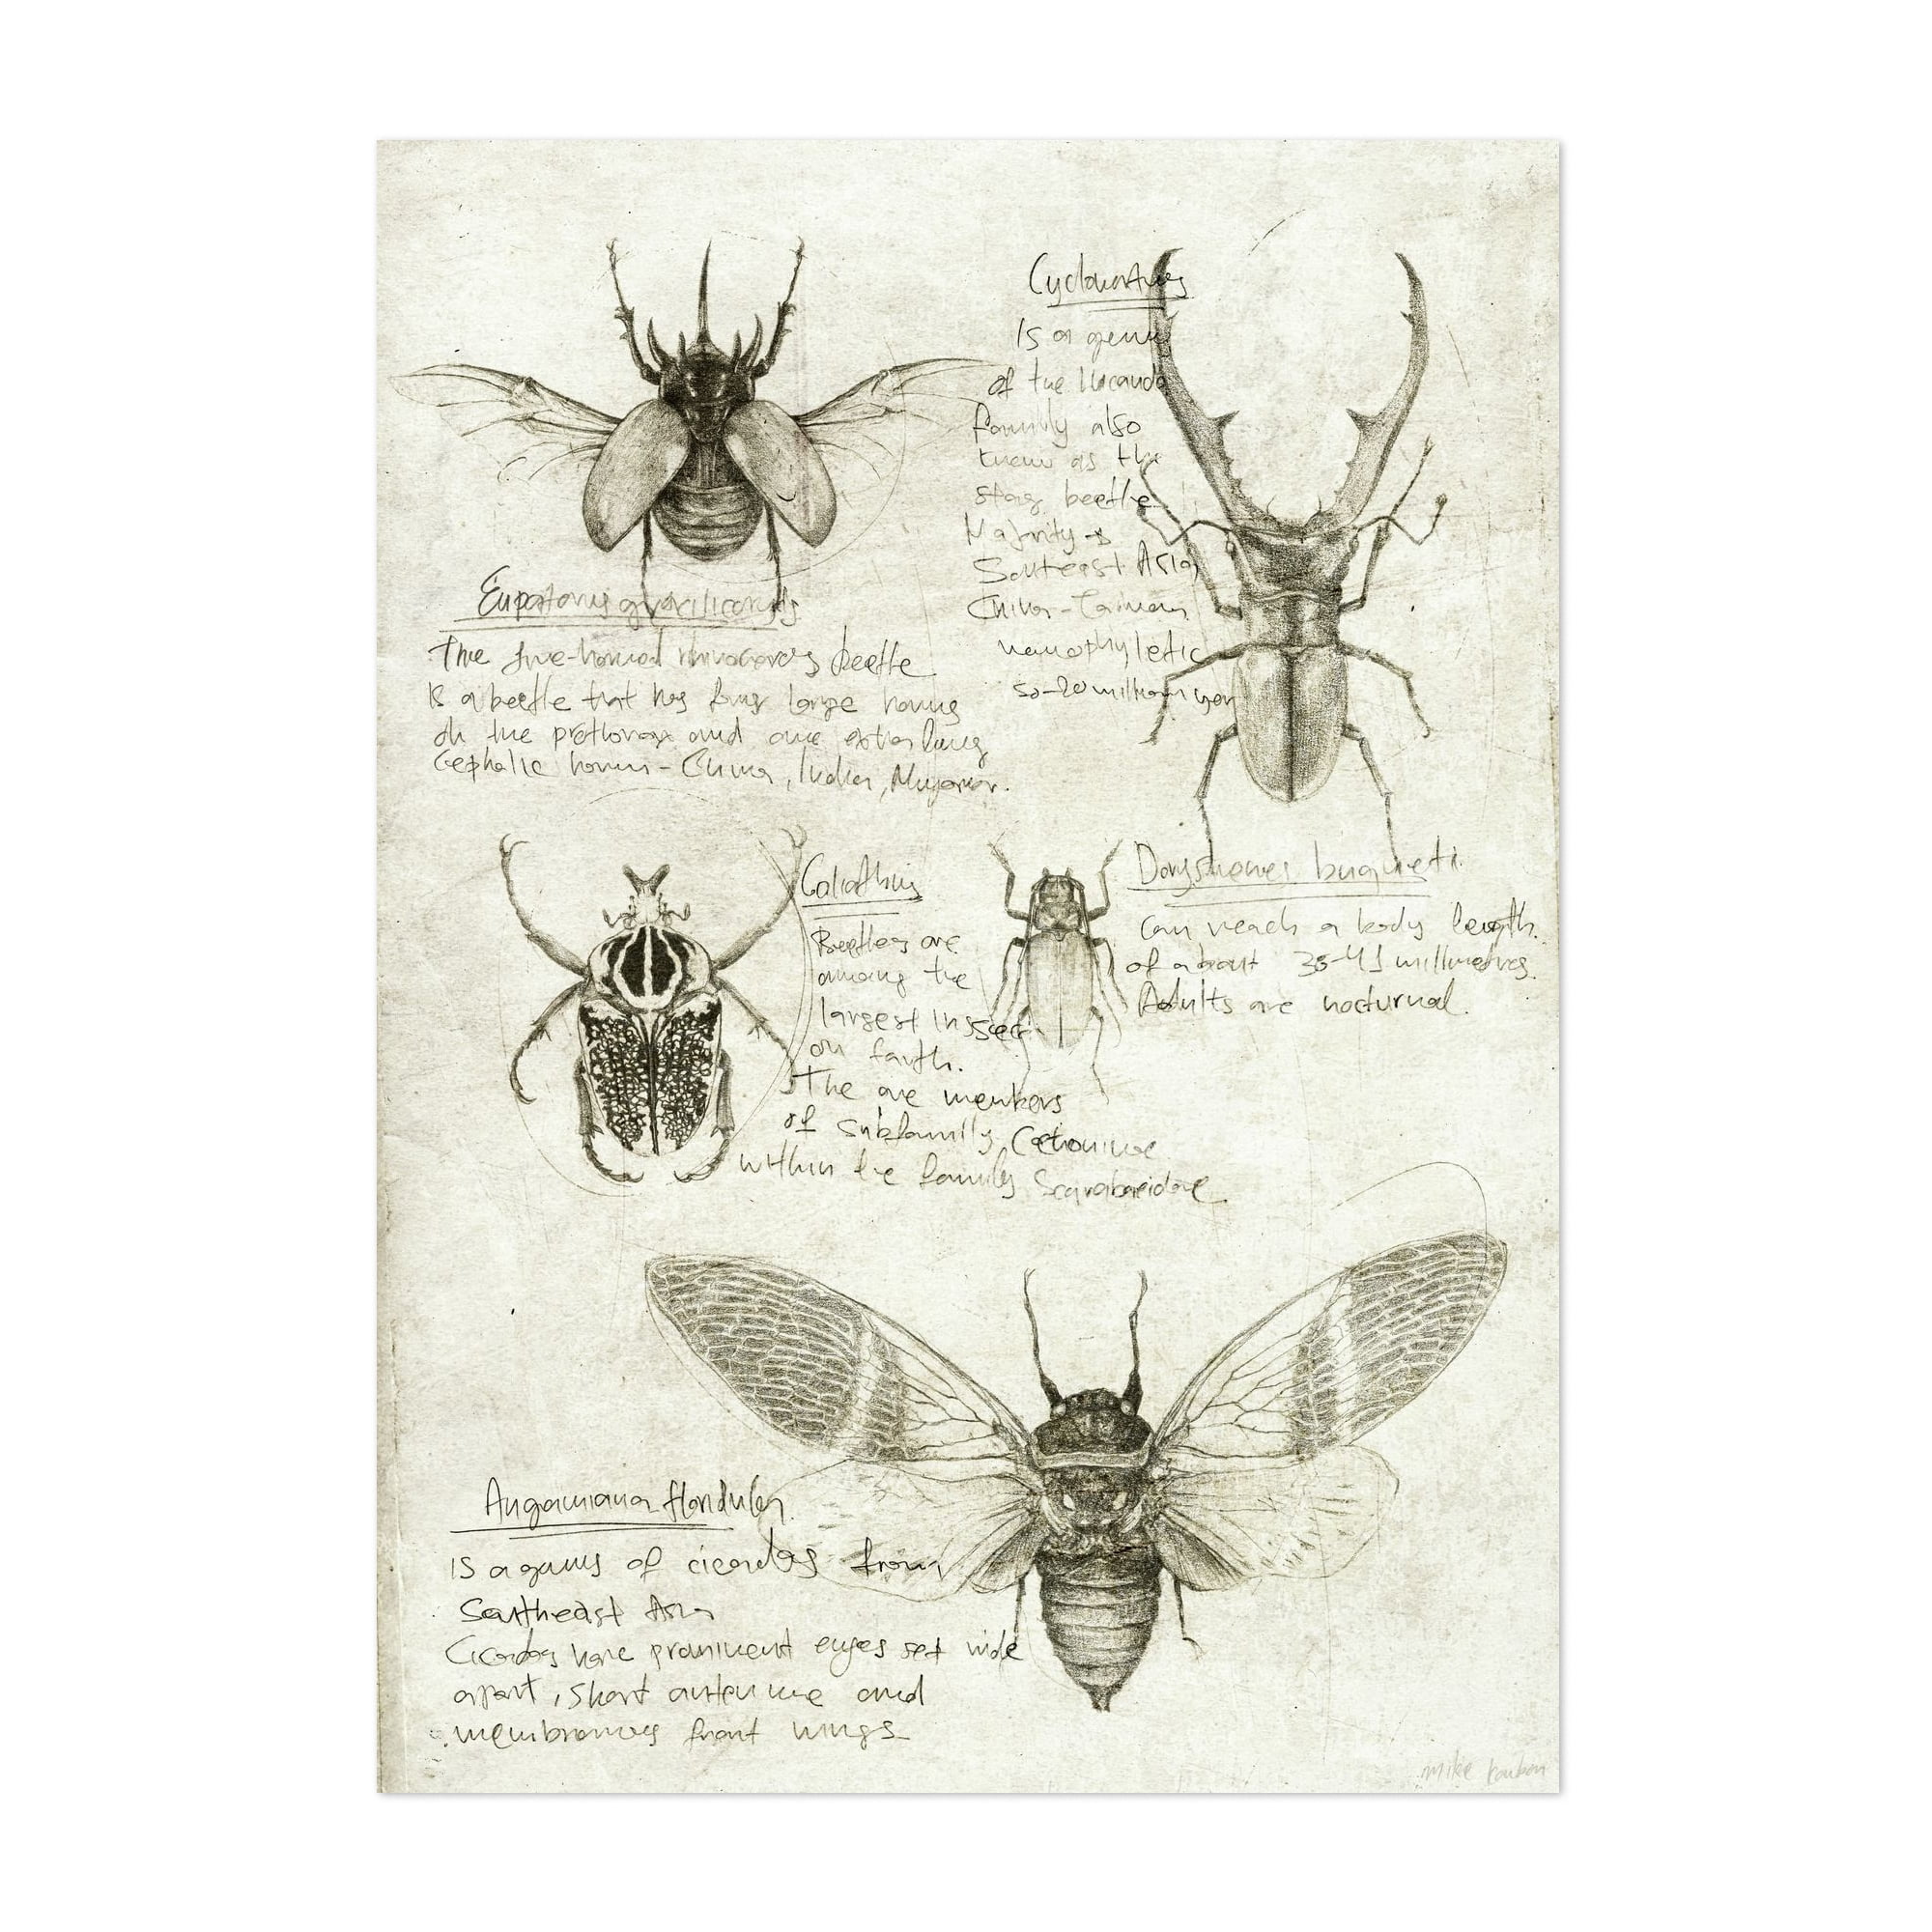 Eupatorus gracilicornis
The five-horned rhinoceros beetle
is a beetle that has four large horns
on the prothorax and one extra long
Cephalic horns - China, India, Myanmar.
Cyclommatus
Is a genus
of the Lucanidae
family also
known as the
stag beetle
Majority
Southeast Asia,
China - Taiwan
50-20 million year
Goliathus
Beetles are
among the
largest Inssect
on Earth.
The are members
of Subfamily Cetoniinae
within the family Scarabaeidae.
Dorysthenes buqueti.
Can reach a body length.
of about millimetres.
Adults are nocturnal.
Angamiana floridula
is a genus of cicadas from
Southeast Asia
Cicadas have prominent eyes set wide
apart, short antennae and
membranous front wings
mike